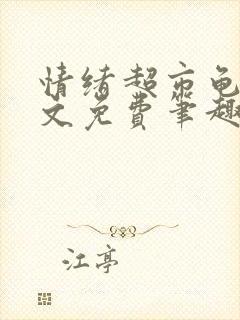 情绪超市龟
文免费笔趣
江亭